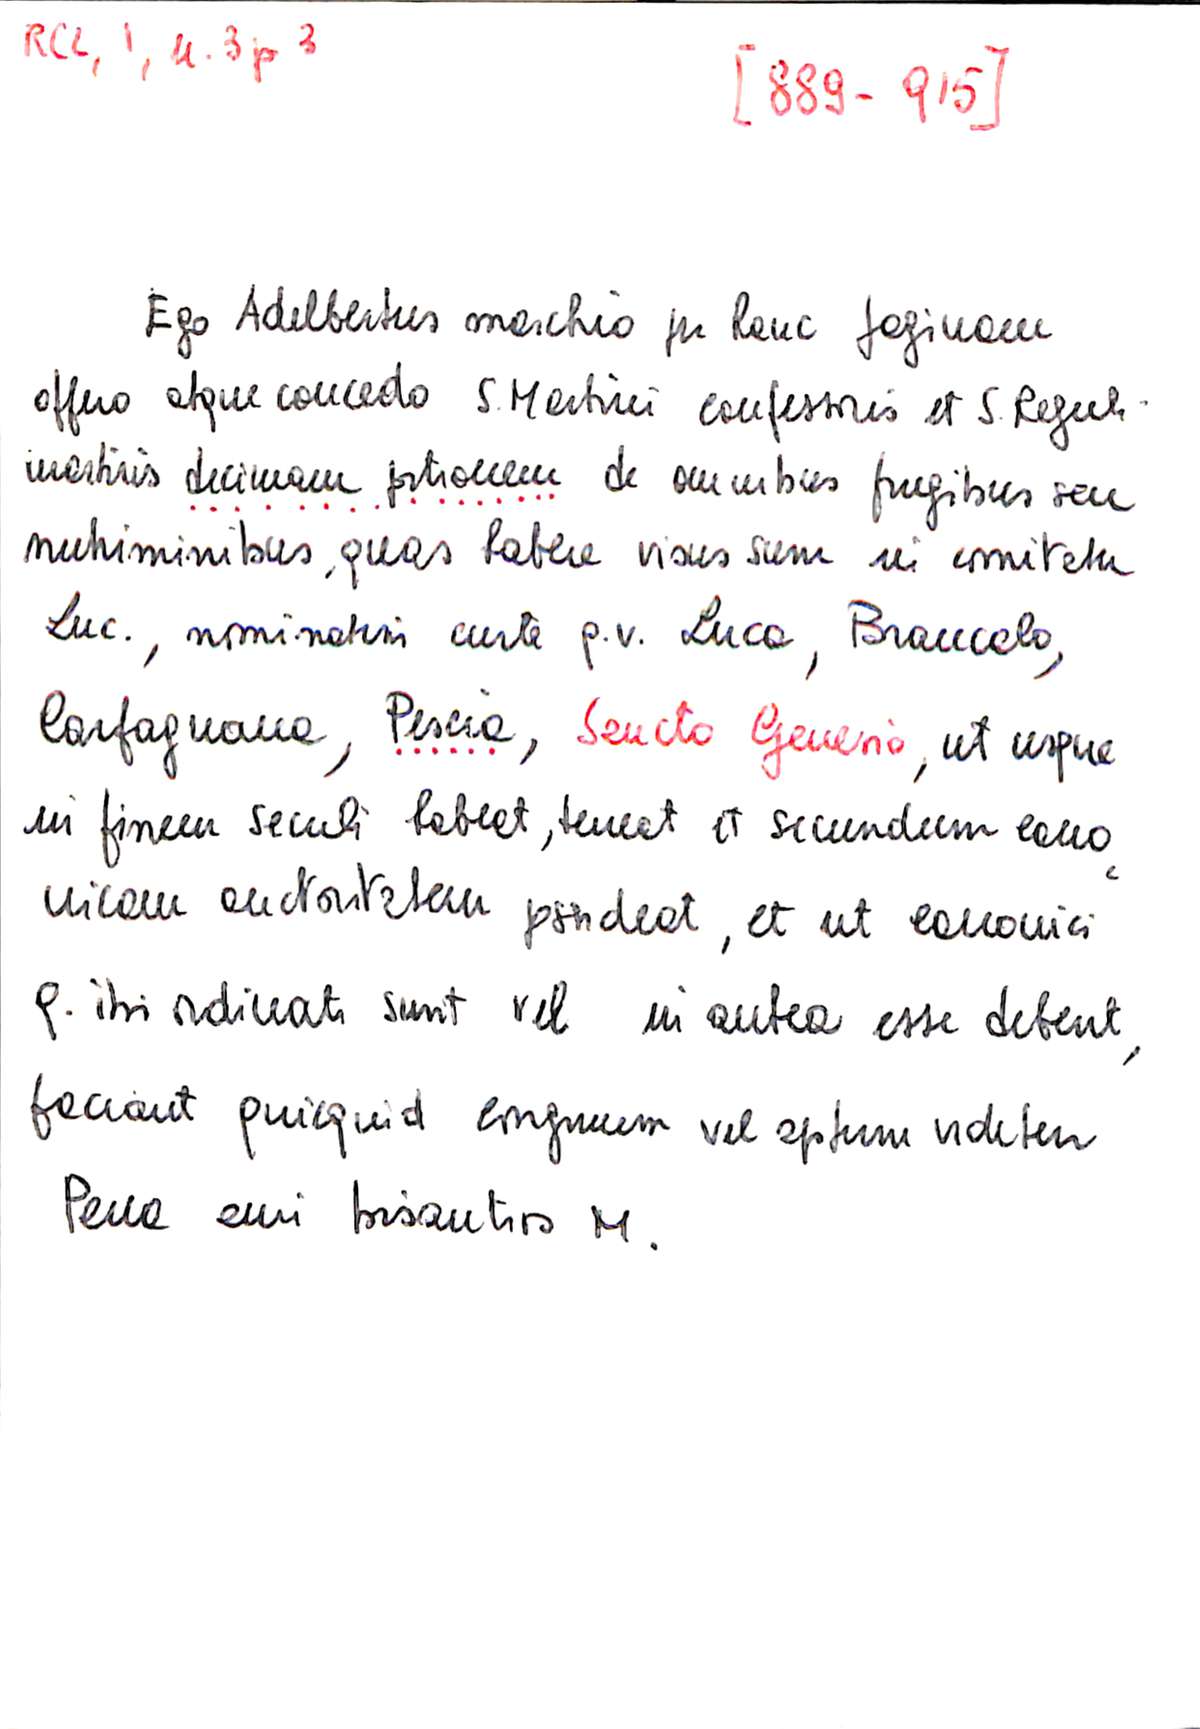 RCL, 1, n. 3 p 3
[889 - 915]
Ego Adelbertus marchio per hanc paginam
offero atque concedo S. Martini confessoris et S. Reguli
martiris decimam portionem de omnibus frugibus seu
nutriminibus, quas habere visus sum in comitatu
Luc., nominatim curte q.v. Luca, Brancalo,
Carfagnana, Pescia, Sancto Genesio, ut usque
in finem seculi habeat, teneat et secundum cano
nicam auctoritatem possideat, et ut canonici
q. ibi ordinati sunt vel in antea esse debent,
faciant quicquid congruum vel aptum videtur
Pena auri bisantios M.